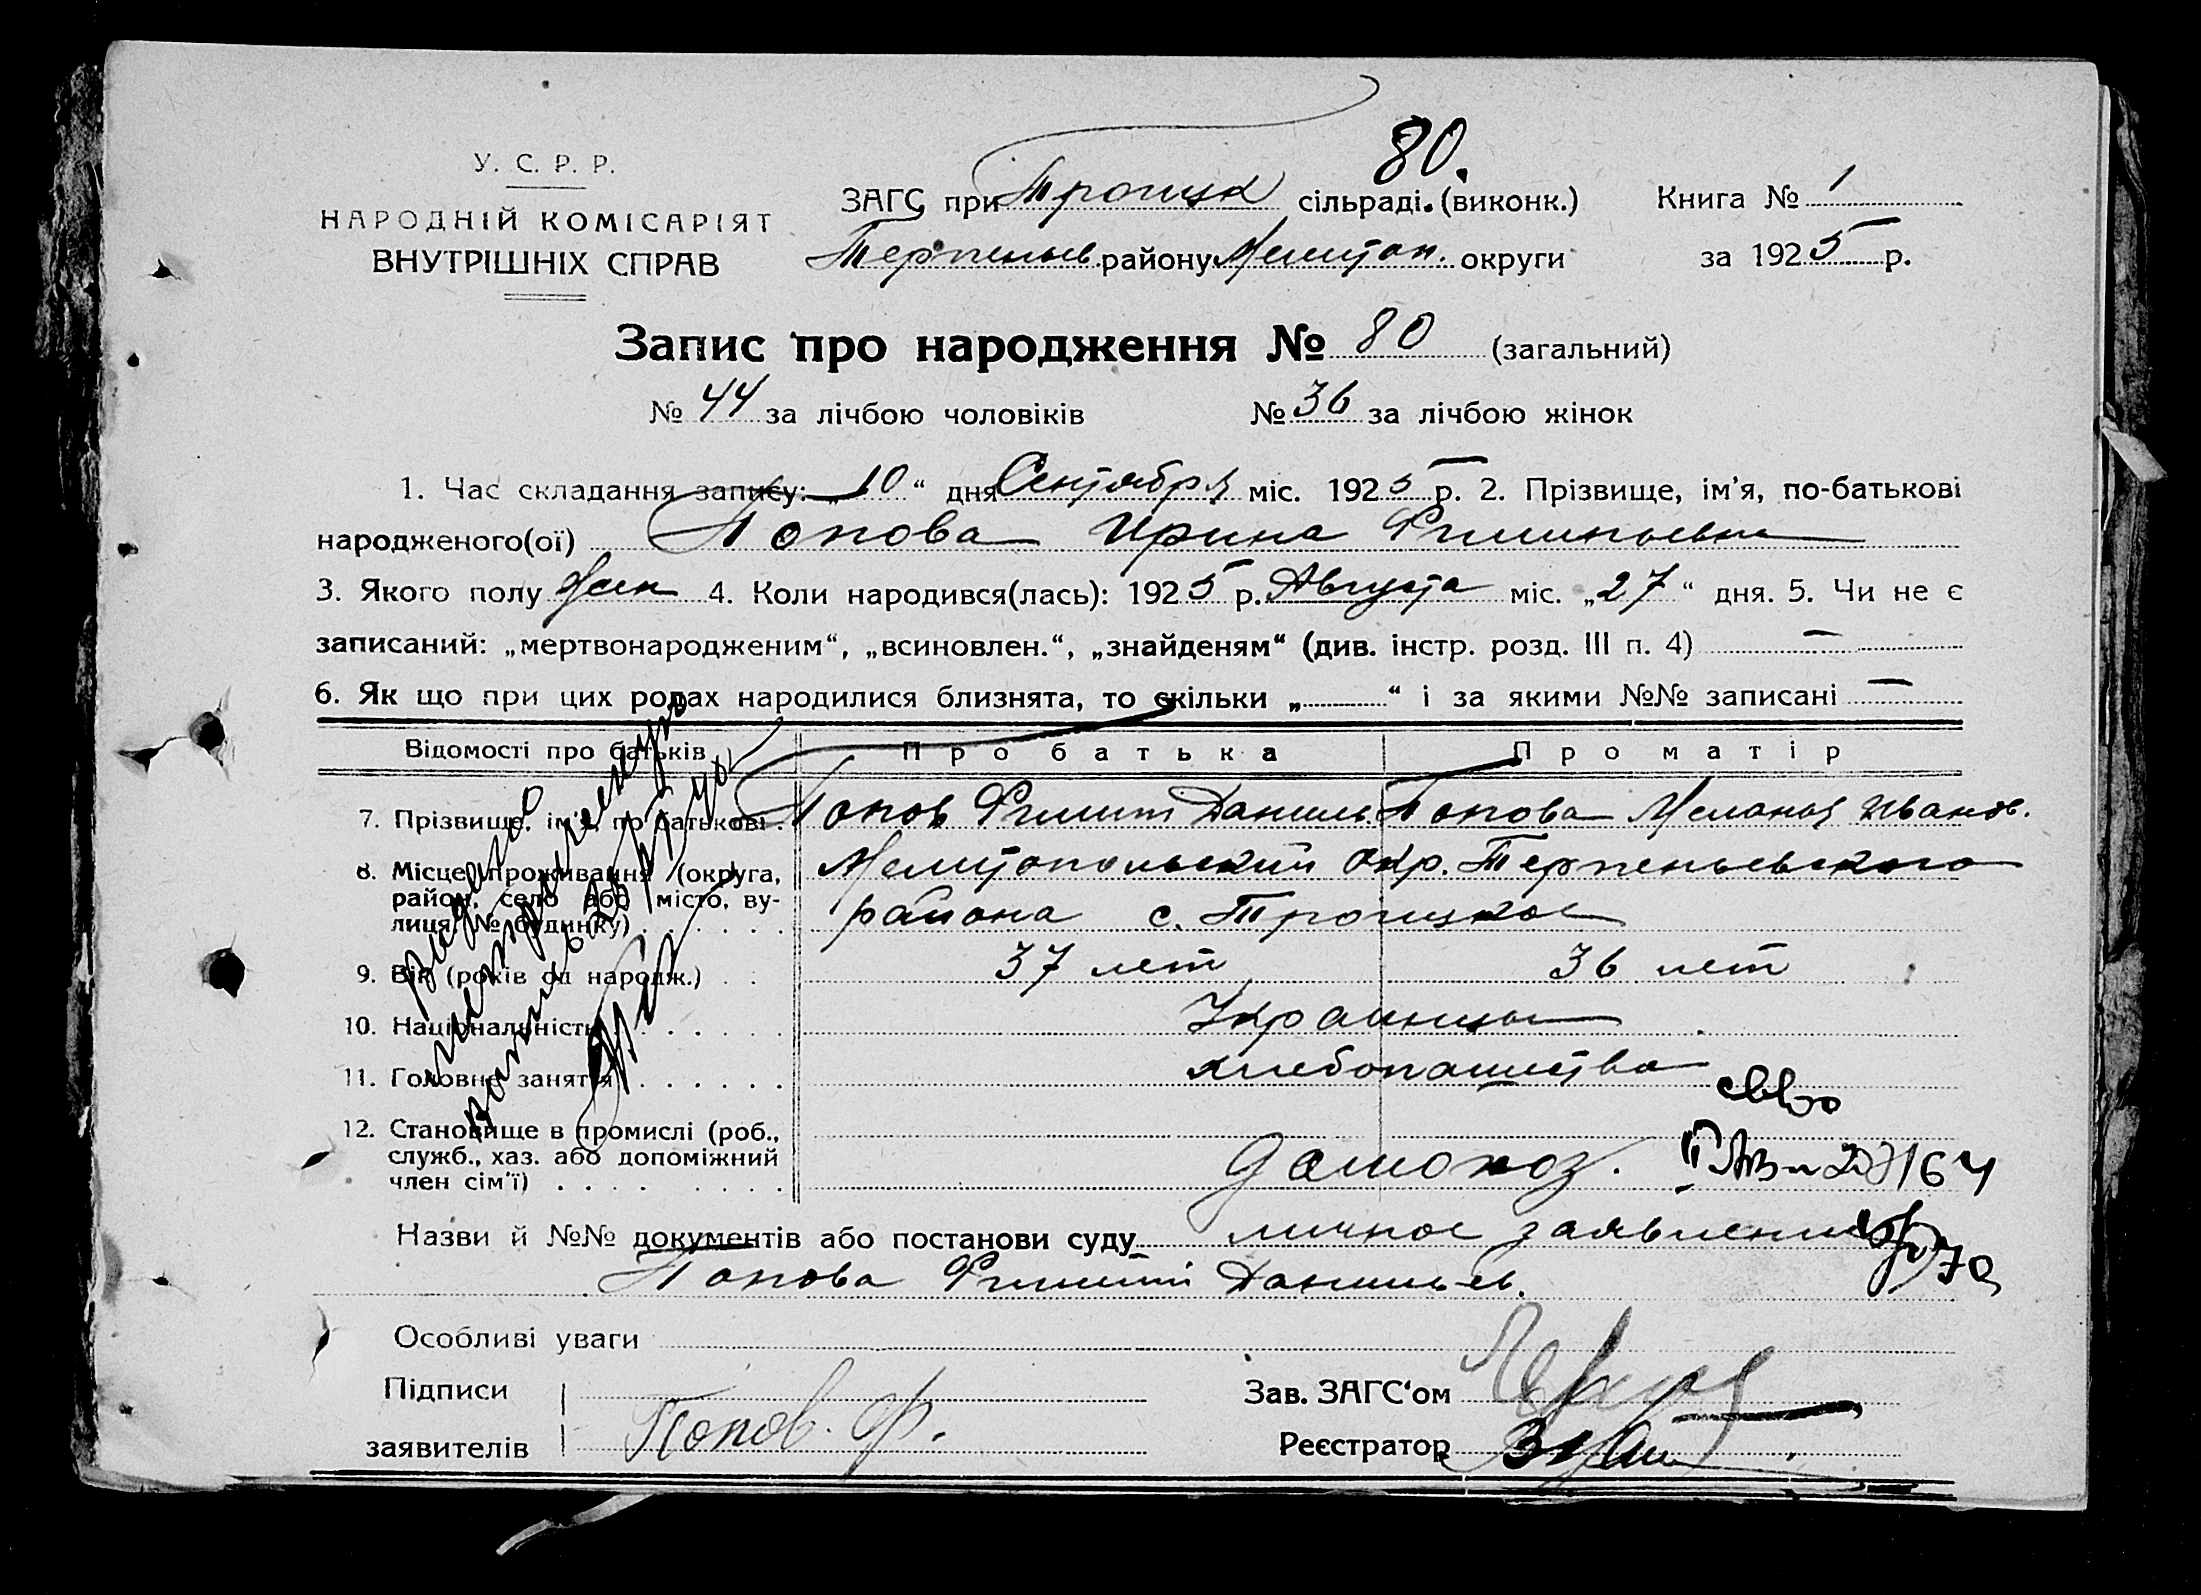 80.
У. С. Р. Р.
НАРОДНІЙ КОМІСАРІЯТ
ВНУТРІШНІХ СПРАВ
ЗАГС при Троицк сільраді. (виконк.)
Терпеньев. району Мелитоп. округи
Книга № 1
за 1925 р.
Запис про народження № 80 (загальний)
№ 44 за лічбою чоловіків № 36 за лічбою жінок
1. Час складання запису: „10“ дня Сентября міс. 1925 р. 2. Прізвище, ім'я, по-батькові
народженого(ої) Попова Ирина
3. Якого полу жен 4. Коли народився(лась): 1925 р. Августа міс. „27“ дня. 5. Чи не є
записаний: „мертвонародженим“, „всиновлен.“, „знайденям“ (див. інстр. розд. III п. 4) —
6. Як що при цих родах народилися близнята, то скільки „ “ і за якими №№ записані —
Відомості про батьків Про батька Про матір
7. Прізвище, ім'я, по батькові. Попов Даниль. Попова Мелания Иванов.
8. Місце проживання (округа,
район, село або місто, ву-
лиця, № будинку)
Мелитопольский окр. Терпеньевского
района с. Троицкое
9. Вік (років од народж.) 37 лет 36 лет
10. Національність Украинцы
11. Головне заняття хлебопашество
12. Становище в промислі (роб.,
служб., хаз. або допоміжний
член сім'ї)
домохоз.
Назви й №№ документів або постанови суду личное заявление
Попова Данильев.
Особливі уваги
Підписи
заявителів
Попов. Ф.
Зав. ЗАГС'ом
Реєстратор